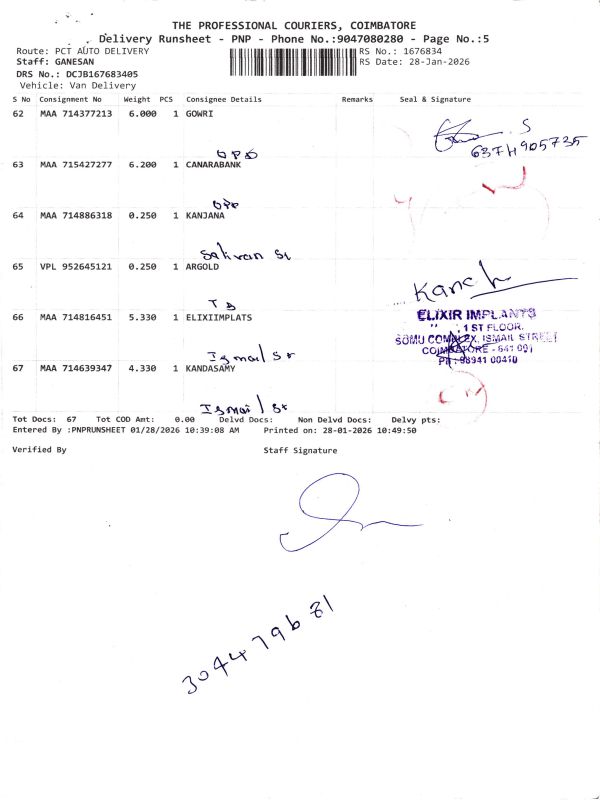 THE PROFESSIONAL COURIERS, COIMBATORE
Delivery Runsheet - PNP - Phone No.:9047080280 - Page No.:5
Route: PCT AUTO DELIVERY RS No.: 1676834
Staff: GANESAN RS Date: 28-Jan-2026
DRS No.: DCJB167683405
Vehicle: Van Delivery
S No Consignment No Weight PCS Consignee Details Remarks Seal & Signature
62 MAA 714377213 6.000 1 GOWRI
63 MAA 715427277 6.200 1 CANARABANK
64 MAA 714886318 0.250 1 KANJANA
65 VPL 952645121 0.250 1 ARGOLD
66 MAA 714816451 5.330 1 ELIXIIMPLATS
ELIXIR IMPLANTS
1 ST FLOOR,
SOMU COMPLEX, ISMAIL STREET
COIMBATORE - 641 001
PH : 98941 00410
Ismail St
67 MAA 714639347 4.330 1 KANDASAMY
Ismail St
Tot Docs: 67 Tot COD Amt: 0.00 Delvd Docs: Non Delvd Docs: Delvy pts:
Entered By :PNPRUNSHEET 01/28/2026 10:39:08 AM Printed on: 28-01-2026 10:49:50
Verified By Staff Signature